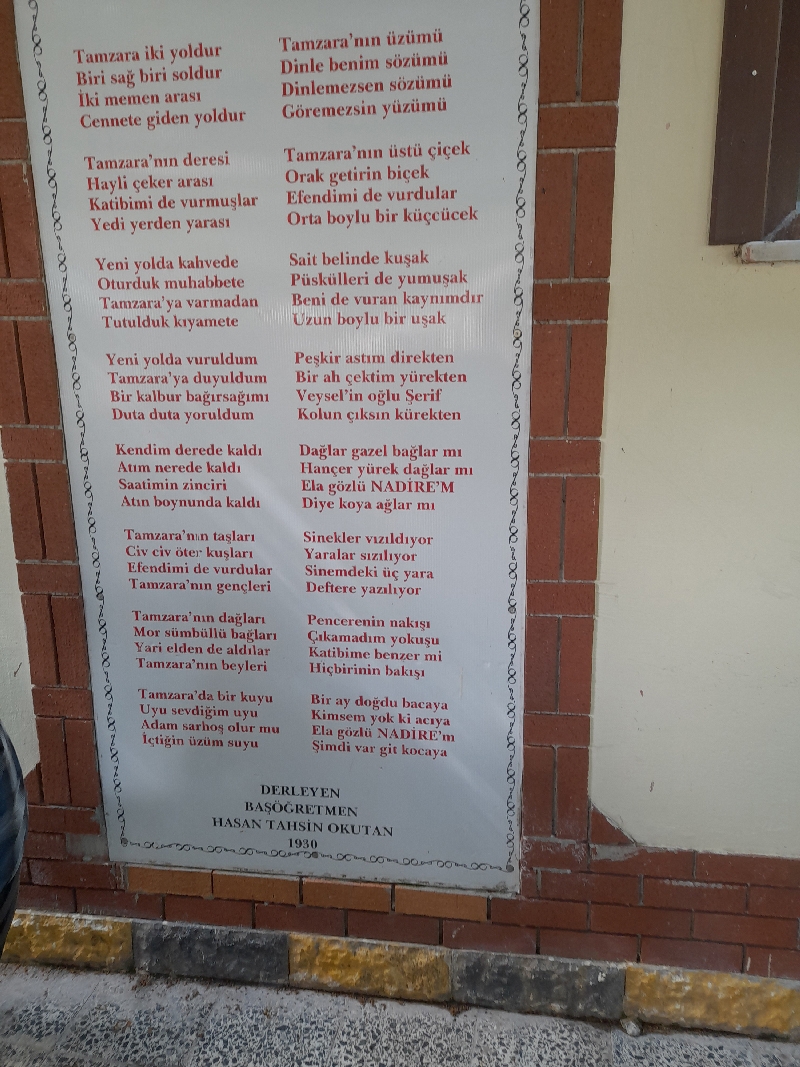 Tamzara iki yoldur
Biri sağ biri soldur
İki memen arası
Cennete giden yoldur
Tamzara'nın deresi
Hayli çeker arası
Katibimi de vurmuşlar
Yedi yerden yarası
Yeni yolda kahvede
Oturduk muhabbete
Tamzara'ya varmadan
Tutulduk kıyamete
Yeni yolda vuruldum
Tamzara'ya duyuldum
Bir kalbur bağırsağımı
Duta duta yoruldum
Kendim derede kaldı
Atım nerede kaldı
Saatimin zinciri
Atın boynunda kaldı
Tamzara'nın taşları
Civ civ öter kuşları
Efendimi de vurdular
Tamzara'nın gençleri
Tamzara'nın dağları
Mor sümbüllü bağları
Yari elden de aldılar
Tamzara'nın beyleri
Tamzara'da bir kuyu
Uyu sevdiğim uyu
Adam sarhoş olur mu
İçtiğin üzüm suyu
Tamzara'nın üzümü
Dinle benim sözümü
Dinlemezsen sözümü
Göremezsin yüzümü
Tamzara'nın üstü çiçek
Orak getirin biçek
Efendimi de vurdular
Orta boylu bir küçcücek
Sait belinde kuşak
Püskülleri de yumuşak
Beni de vuran kaynımdır
Uzun boylu bir uşak
Peşkir astım direkten
Bir ah çektim yürekten
Veysel'in oğlu Şerif
Kolun çıksın kürekten
Dağlar gazel bağlar mı
Hançer yürek dağlar mı
Ela gözlü NADİRE'M
Diye koya ağlar mı
Sinekler vızıldıyor
Yaralar sızılıyor
Sinemdeki üç yara
Deftere yazılıyor
Pencerenin nakışı
Çıkamadım yokuşu
Katibime benzer mi
Hiçbirinin bakışı
Bir ay doğdu bacaya
Kimsem yok ki acıya
Ela gözlü NADİRE'm
Şimdi var git kocaya
DERLEYEN
BAŞÖĞRETMEN
HASAN TAHSİN OKUTAN
1930